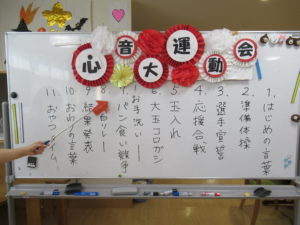 心音大運動会
1. はじめの言葉
2. 準備体操
3. 選手宣誓
4. 応援合戦
5. 玉入れ
6. 大玉コロガシ
お手洗い
パン食い戦争
白リレー
9. 結果発表
10. おわりの言葉
11. おやつタイム